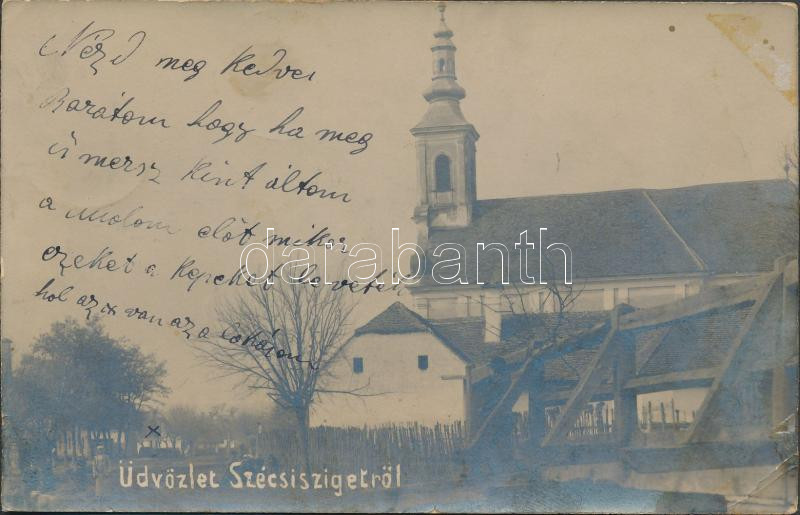 Nézd meg kedves
Barátom hogy ha meg
is mersz kint áltam
a malom előt mikor
ezeket a kepeket levették
hol az x van az a lakásom
darabanth
x
Üdvözlet Szécsiszigetről